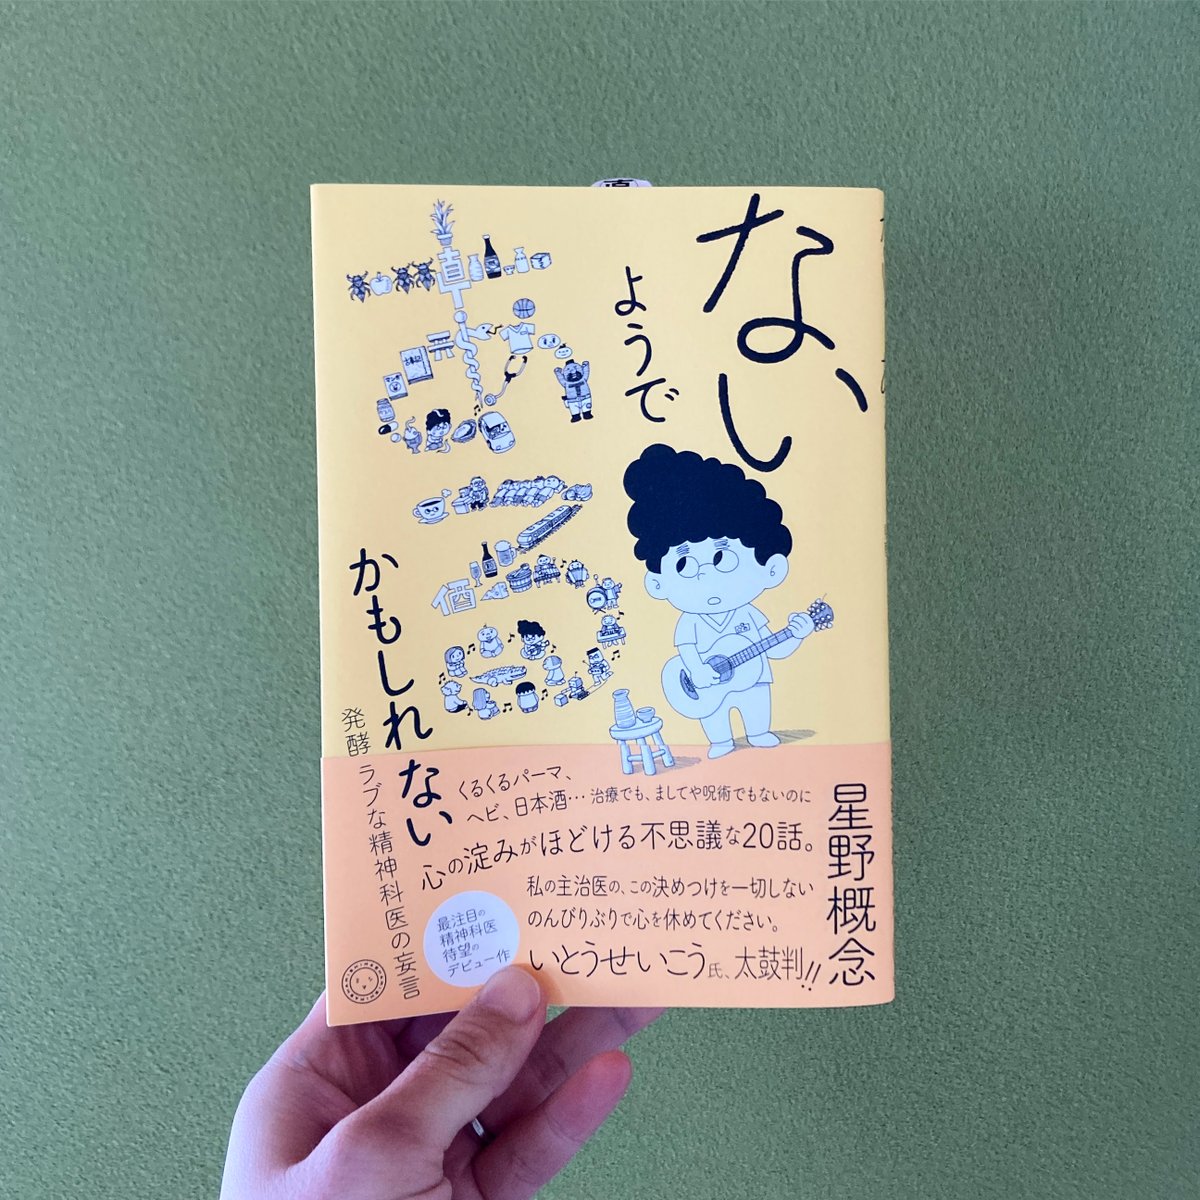 直
ない
ようで
ある
かもしれない
発酵ラブな精神科医の妄言
星野概念
くるくるパーマ、
ヘビ、日本酒…治療でも、ましてや呪術でもないのに
心の淀みがほどける不思議な20話。
私の主治医の、この決めつけを一切しない
のんびりぶりで心を休めてください。
いとうせいこう氏、太鼓判!!
最注目の
精神科医
待望の
デビュー作